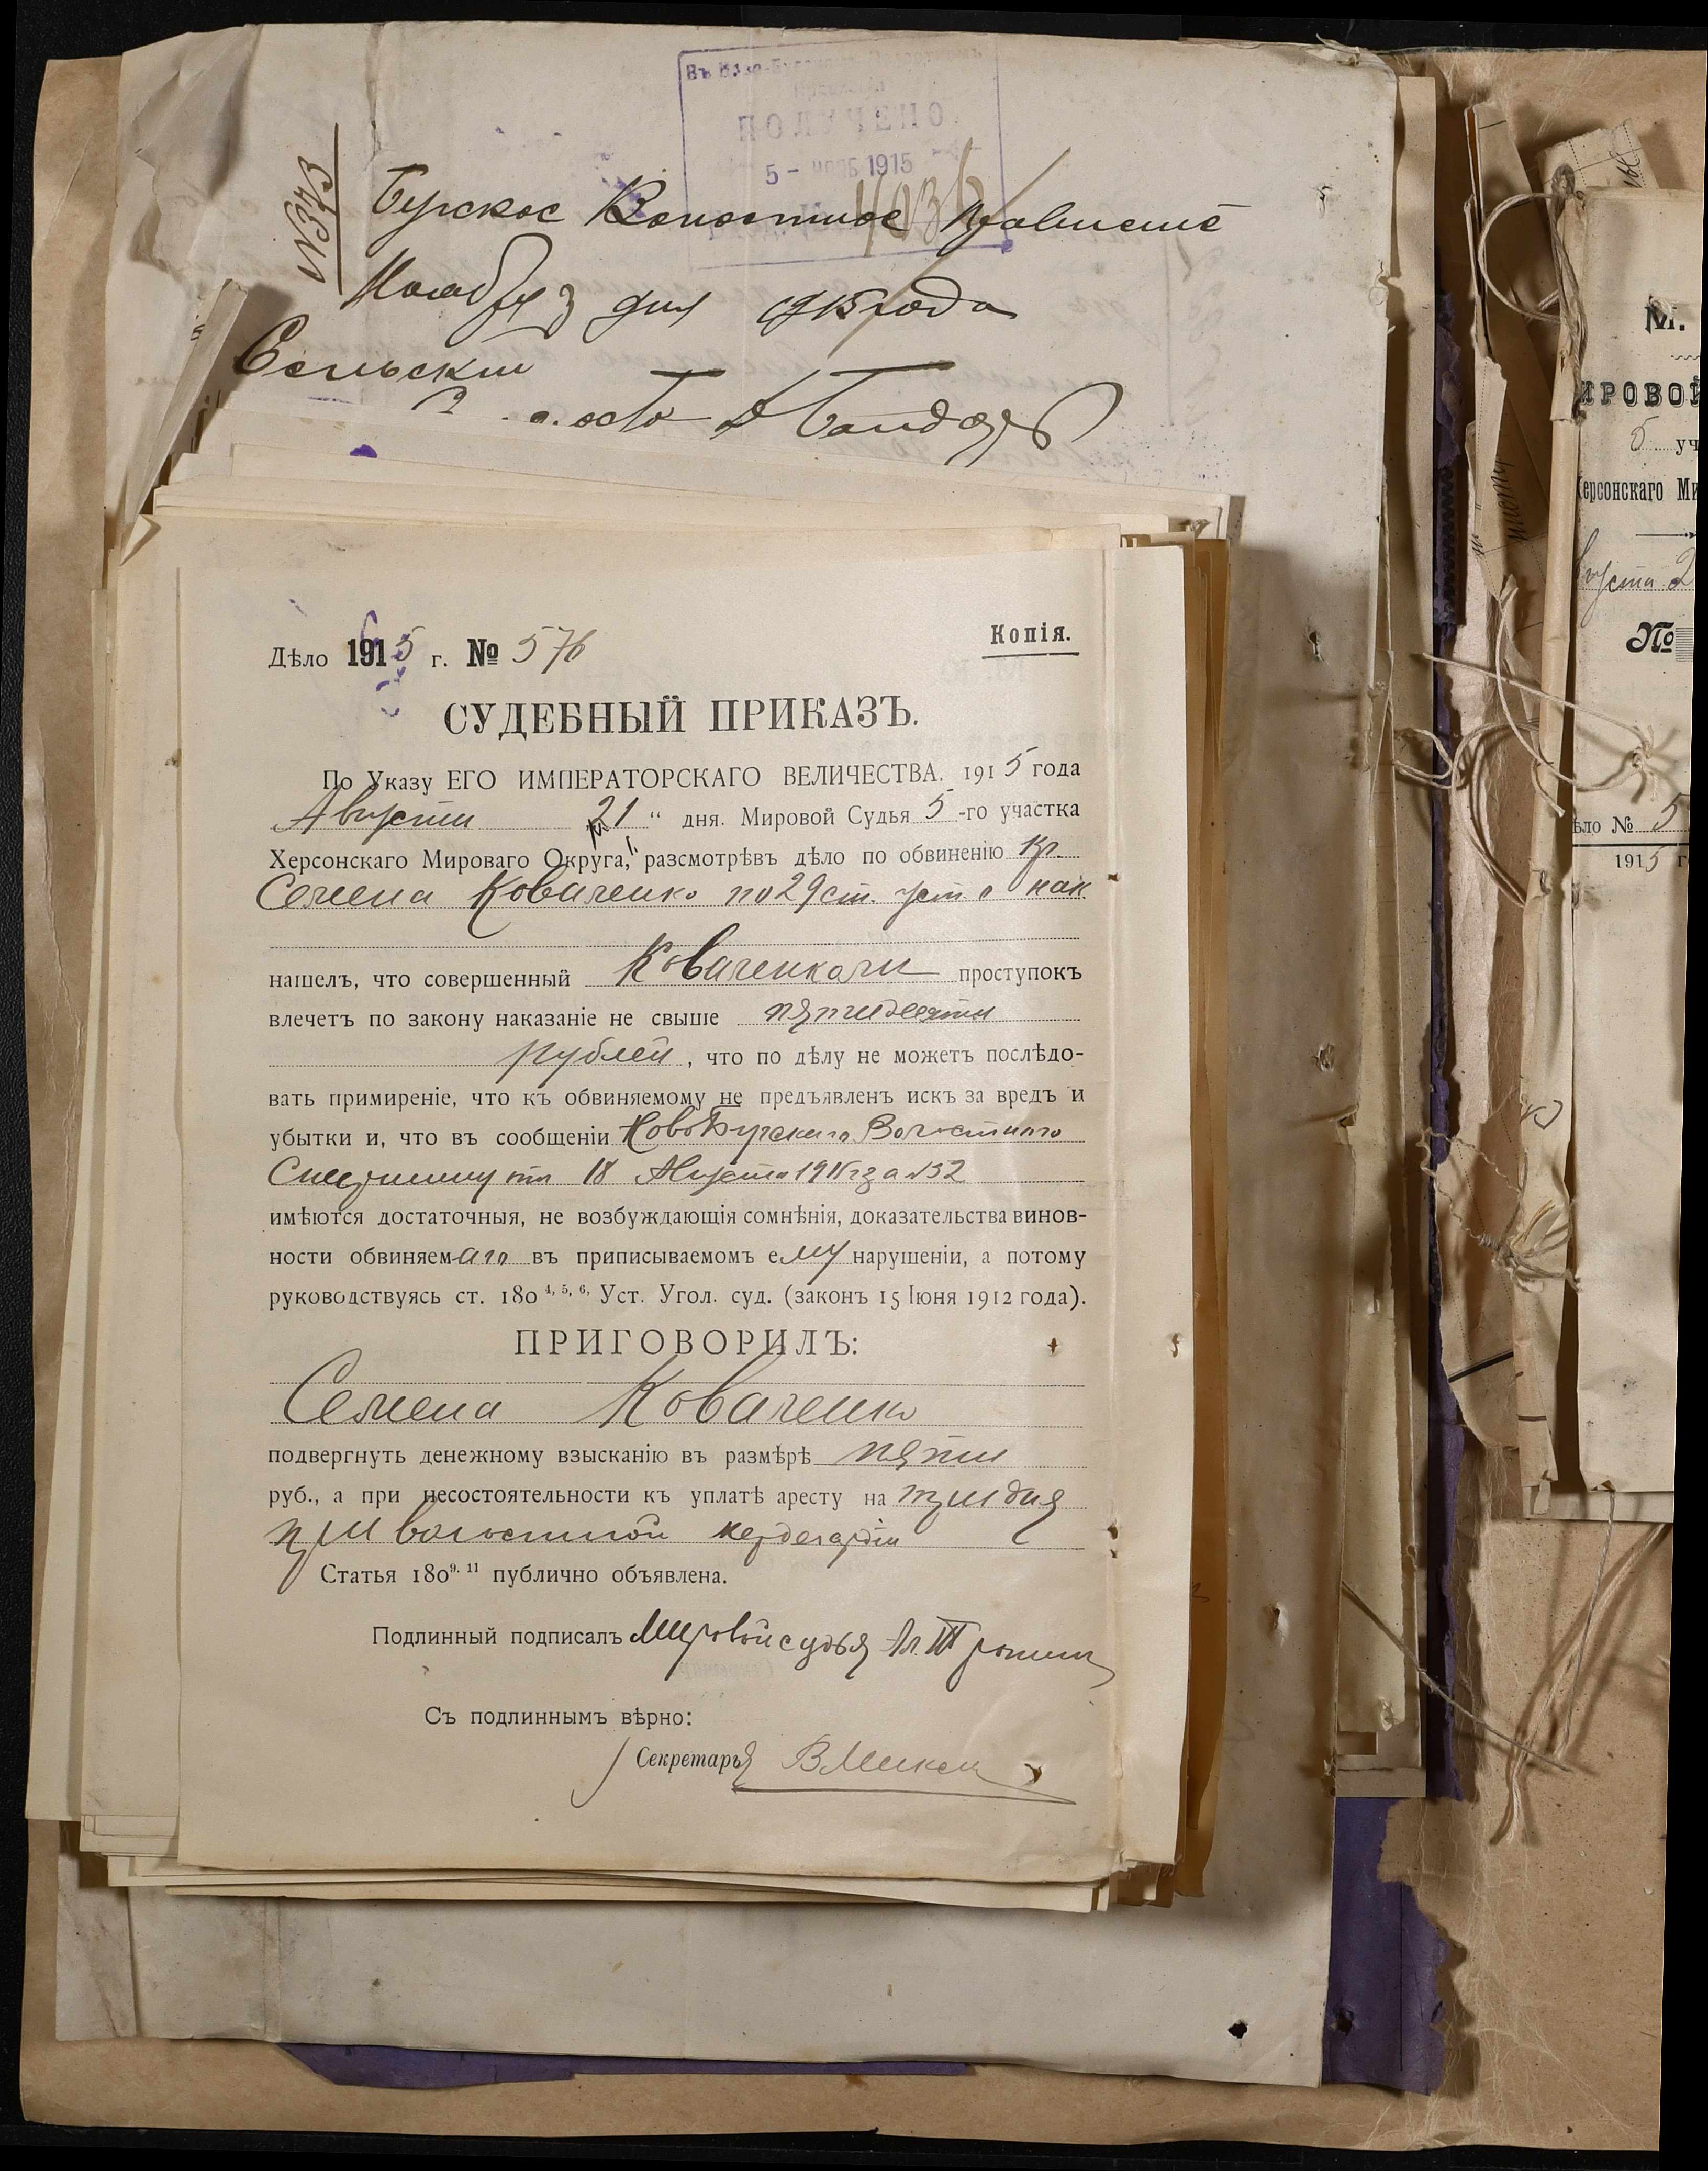 ПОЛУЧЕНО
5 - НОЯБ 1915
№373
Бурское Волостное Правление
Ноября 3 дня 1915 года
Сельский
Копія.
Дѣло 1915 г. № 576
СУДЕБНЫЙ ПРИКАЗЪ.
По Указу ЕГО ИМПЕРАТОРСКАГО ВЕЛИЧЕСТВА. 1915 года
Августа 21 “ дня. Мировой Судья 5-го участка
Херсонскаго Мироваго Округа, разсмотрѣвъ дѣло по обвиненію кр.
Семена Коваченко по 29 ст. уст о нак.
нашелъ, что совершенный Коваченкомъ проступокъ
влечетъ по закону наказаніе не свыше пятидесяти
рублей, что по дѣлу не можетъ послѣдо-
вать примиреніе, что къ обвиняемому не предъявленъ искъ за вредъ и
убытки и, что въ сообщеніи НовоБурскаго Волостного
18 Августа 1915 г за №52
имѣются достаточныя, не возбуждающія сомнѣнія, доказательства винов-
ности обвиняемаго въ приписываемомъ ему нарушеніи, а потому
руководствуясь ст. 180 4, 5, 6, Уст. Угол. суд. (законъ 15 Іюня 1912 года).
ПРИГОВОРИЛЪ:
Семена Коваченко
подвергнуть денежному взысканію въ размѣрѣ пяти
руб., а при несостоятельности къ уплатѣ аресту на три дня
при волостной
Статья 180 9. 11 публично объявлена.
Подлинный подписалъ Мировой судья
Съ подлиннымъ вѣрно:
Секретарь
М.
ИРОВОЙ
5 уч
Херсонскаго Ми
Августа 2
№
ѣло № 5
1915 г